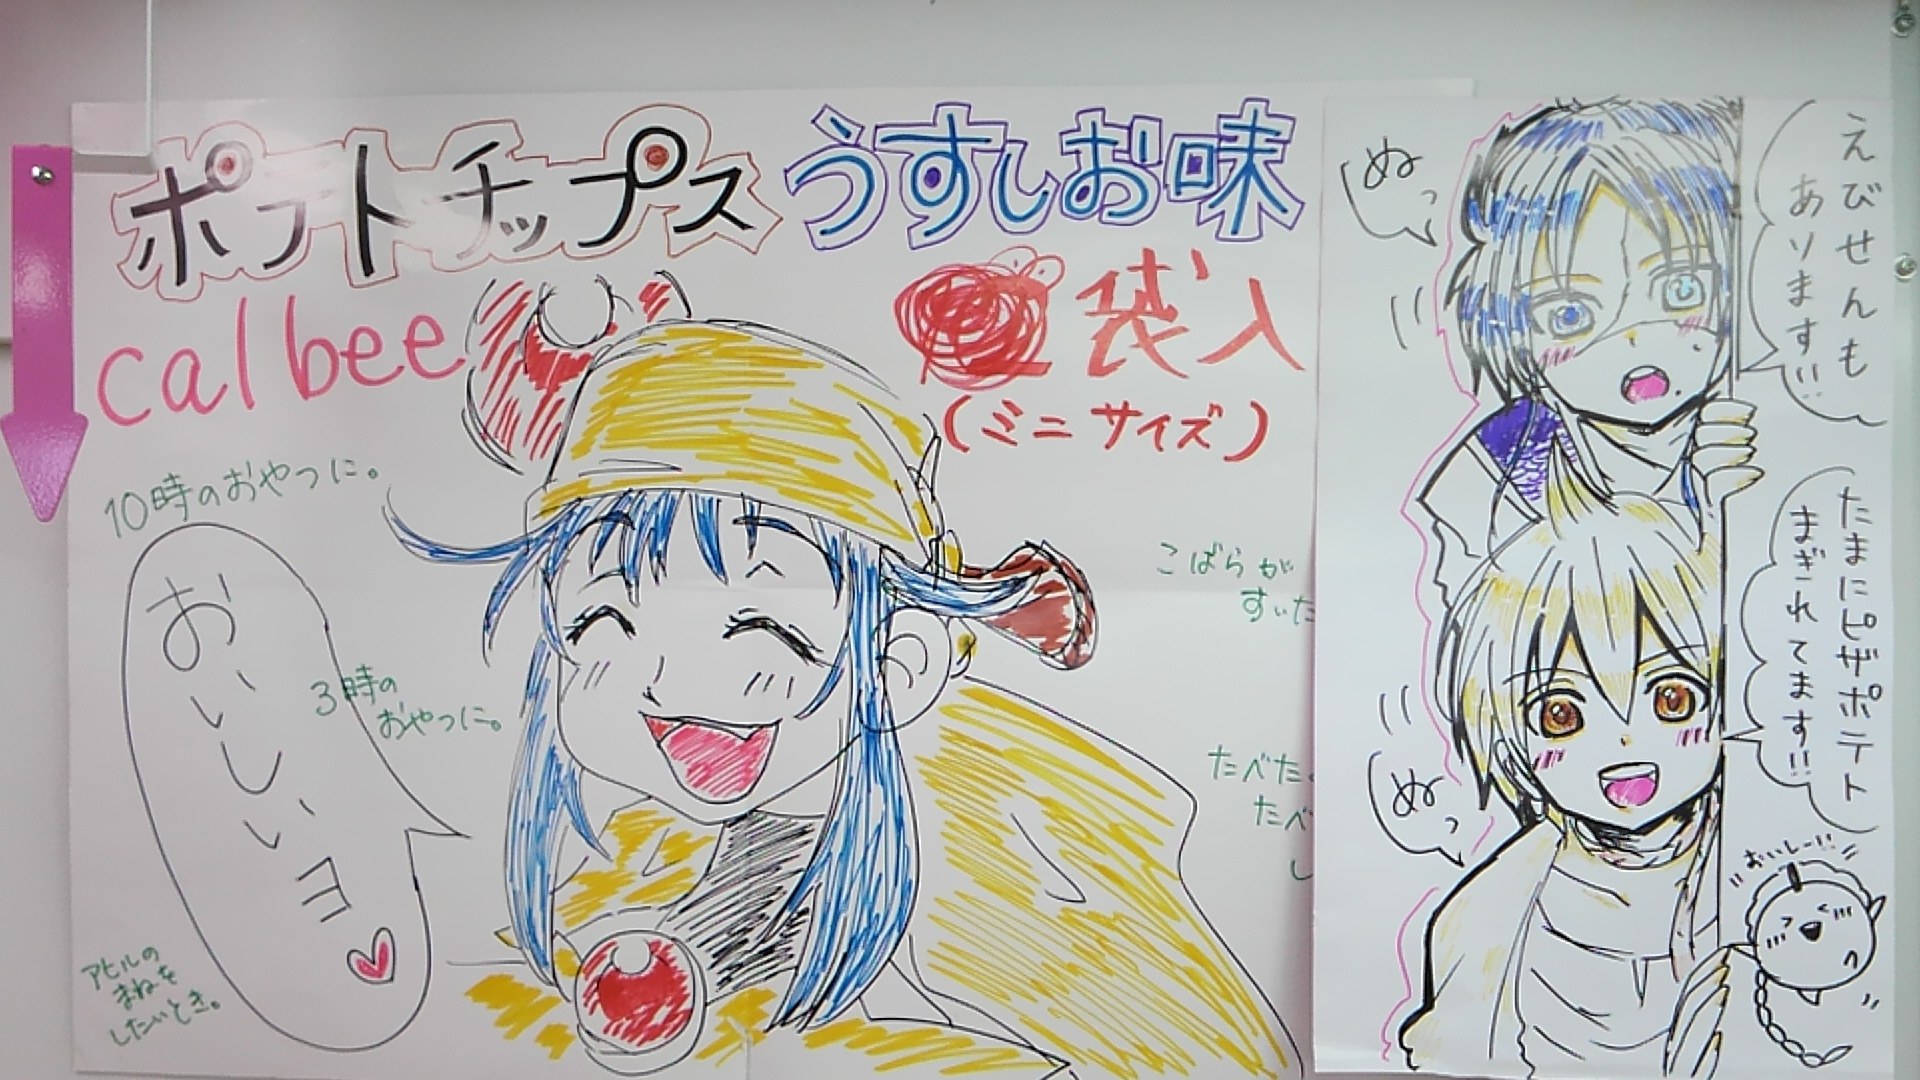 ポテトチップス うすしお味
calbee
袋入
(ミニサイズ)
10時のおやつに。
おいしいヨ
3時の
おやつに。
アヒルの
まねを
したいとき。
こばらが
すいた
たべた
たべ
し
ぬっ
えびせんも
あります!!
たまにピザポテト
まぎれてます!!
ぬっ
おいしー!!